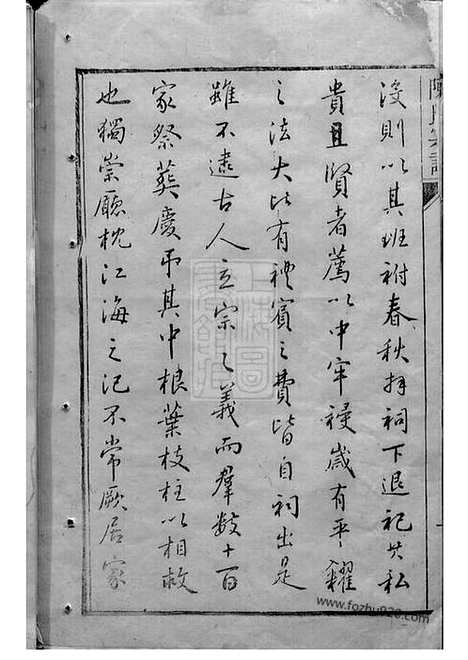 陳氏宗譜
沒則以其班祔春秋拜祠下退祀其私
貴且賢者薦以中牢祲歲有平糶
之法大比有禮賓之費皆自祠出是
雖不逮古人立宗之義而羣數十百
家祭葬慶弔其中根葉枝柱以相救
也獨崇廳枕江海之圮不常厥居家
www.fozhu920.com